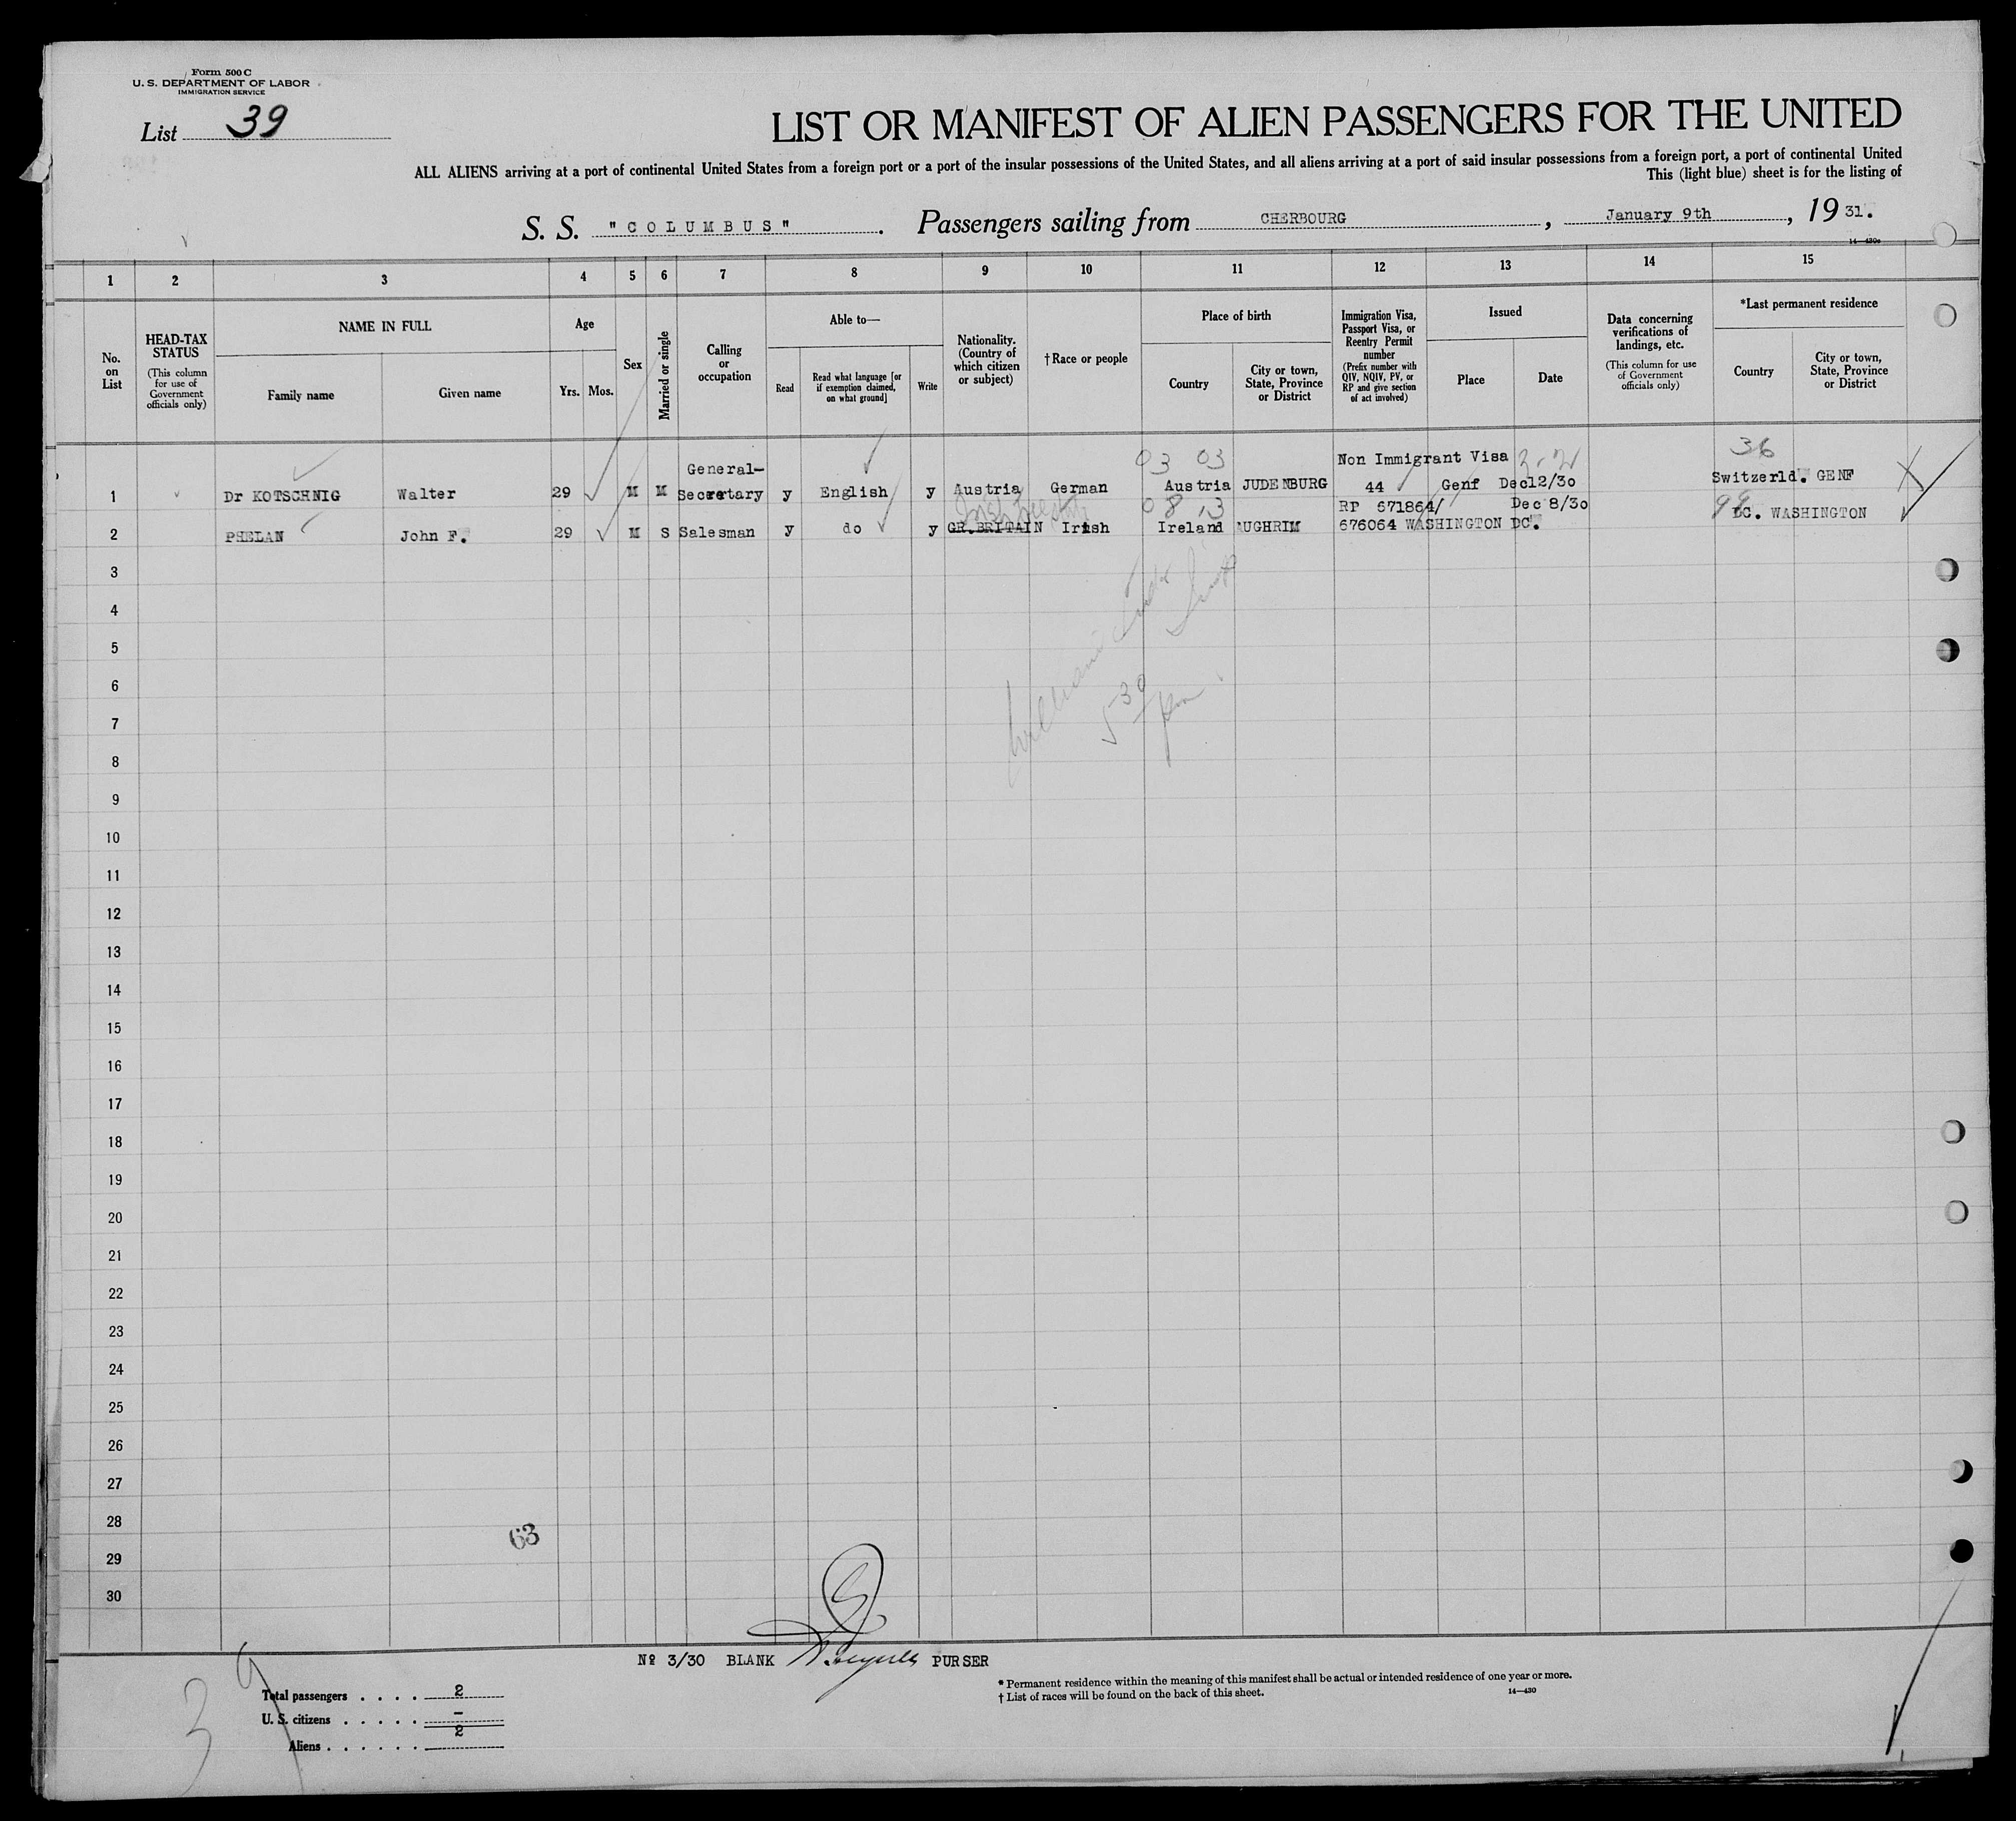 Form 500 C
U. S. DEPARTMENT OF LABOR
IMMIGRATION SERVICE
List 39
LIST OR MANIFEST OF ALIEN PASSENGERS FOR THE UNITED
ALL ALIENS arriving at a port of continental United States from a foreign port or a port of the insular possessions of the United States, and all aliens arriving at a port of said insular possessions from a foreign port, a port of continental United
This (light blue) sheet is for the listing of
S. S. "COLUMBUS". Passengers sailing from CHERBOURG, January 9th, 19 31.
14—430a
1 2 3 4 5 6 7 8 9 10 11 12 13 14 15
No. on List
HEAD-TAX STATUS (This column for use of Government officials only)
NAME IN FULL
Family name
Given name
Age
Yrs. Mos.
Sex
Married or single
Calling or occupation
Able to—
Read
Read what language [or if exemption claimed, on what ground]
Write
Nationality. (Country of which citizen or subject)
†Race or people
Place of birth
Country
City or town, State, Province or District
Immigration Visa, Passport Visa, or Reentry Permit number (Prefix number with QIV, NQIV, PV, or RP and give section of act involved)
Issued
Place
Date
Data concerning verifications of landings, etc. (This column for use of Government officials only)
*Last permanent residence
Country
City or town, State, Province or District
03 03 36
General- Non Immigrant Visa
1 Dr KOTSCHNIG Walter 29 M M Secretary y English y Austria German Austria JUDENBURG 44 Genf Dec12/30 Switzerld. GENF
Irish Free State 08 13 RP 671864/ Dec 8/30
2 PHELAN John F. 29 M S Salesman y do y GR.BRITAIN Irish Ireland AUGHRIM 676064 WASHINGTON DC. DC. WASHINGTON
3
4
5
6
5 30 pm
7
8
9
10
11
12
13
14
15
16
17
18
19
20
21
22
23
24
25
26
27
28
63
29
30
№ 3/30 BLANK PURSER
* Permanent residence within the meaning of this manifest shall be actual or intended residence of one year or more.
† List of races will be found on the back of this sheet.
14—430
Total passengers . . . . 2
U. S. citizens . . . . . –
Aliens . . . . . . 2
39